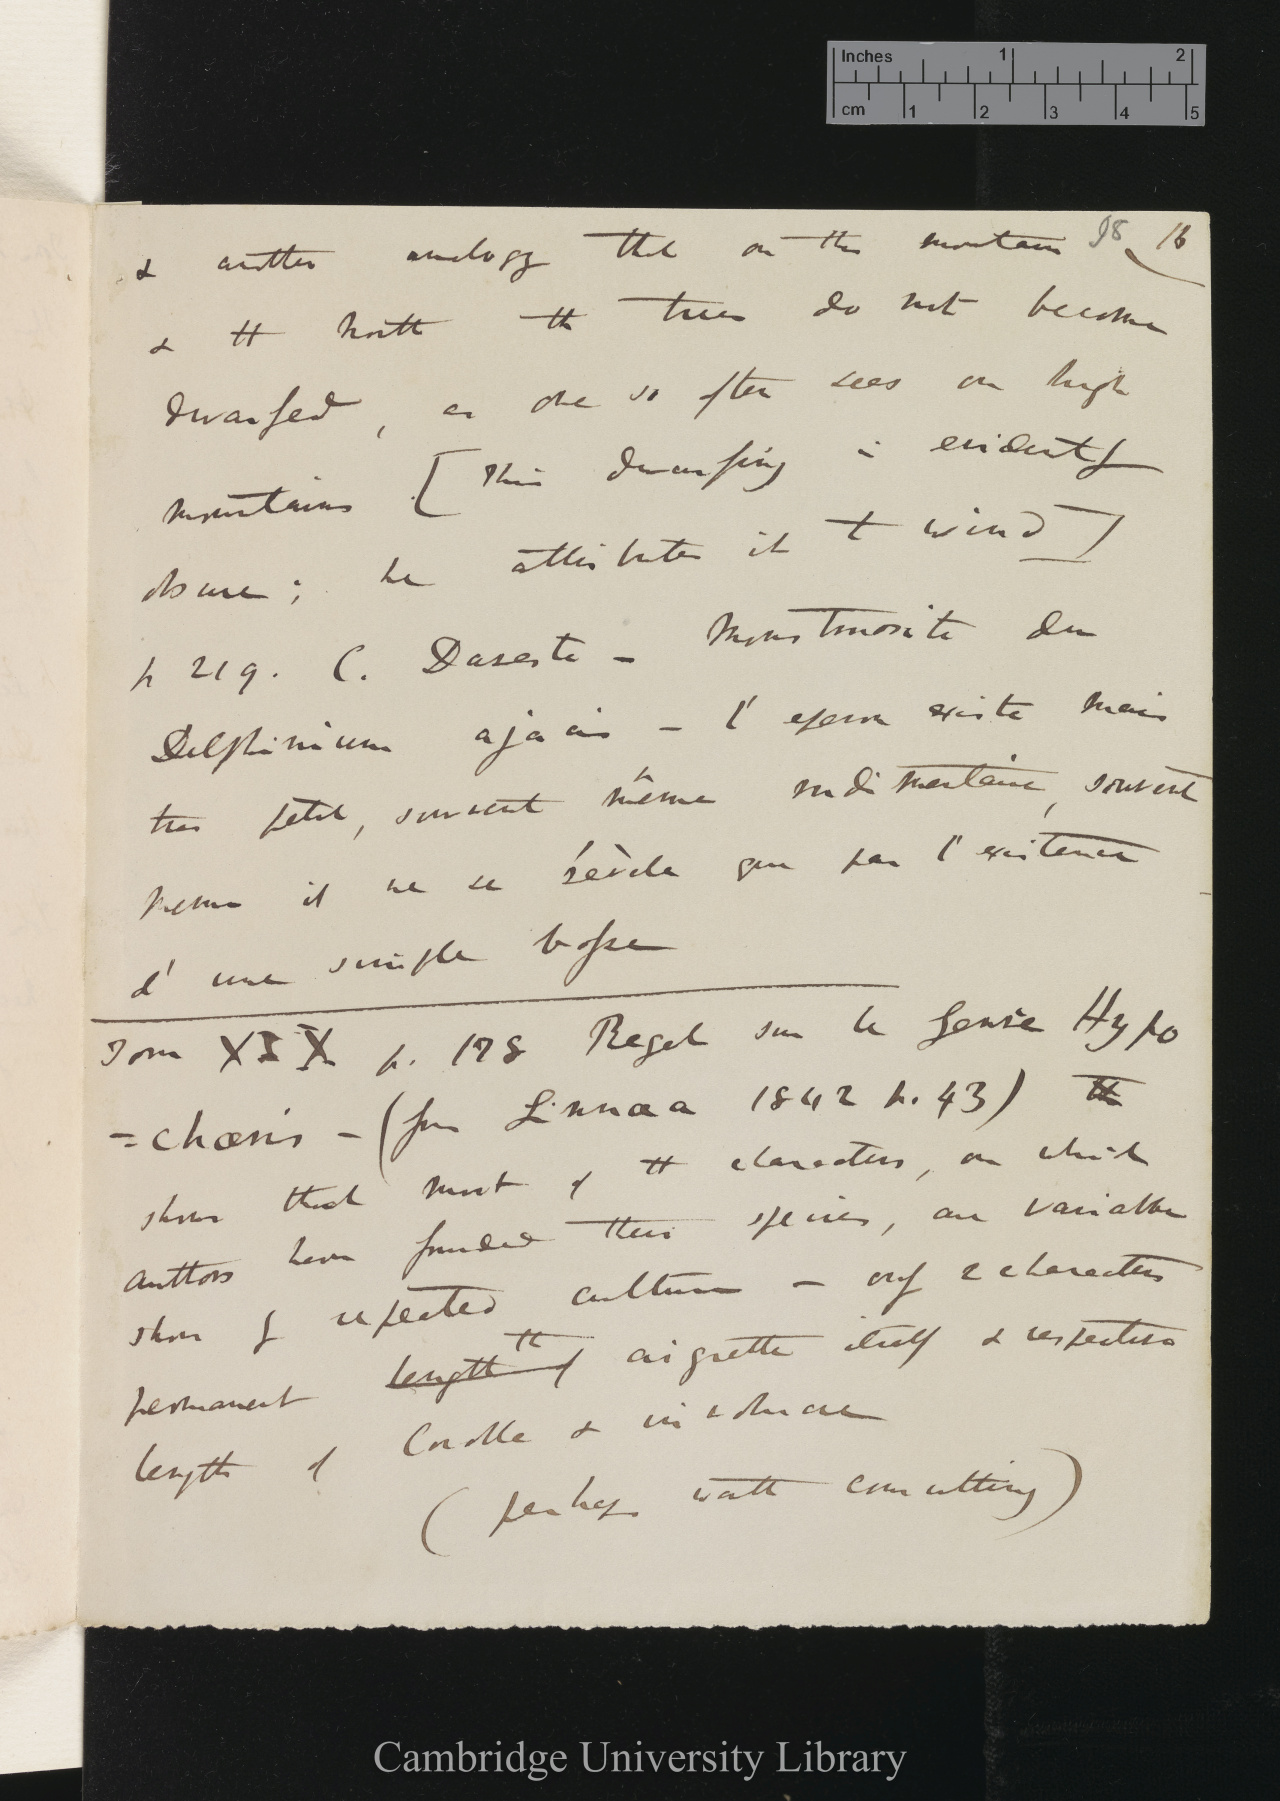 Inches 1 2
cm 1 2 3 4 5
98 16
& another analogy that on the mountains
& the North the trees do not become
dwarfed, as one so often sees on high
mountains [This dwarfing is evidently
obscure; he attributes it to wind]
p 219. C. Dareste – Monstruosite du
Delphinium ajacis – l'eperon existe mais
tres petit, souvent même rudimentaire, souvent
meme il ne se révèle que par l'existence
d'une simple bosse
Tom XIX p. 178 Regel sur le genre Hypo
=chœris – (from Linnæa 1842 p. 43) the
shows that most of the characters, on which
authors have founded their species, are variable
show by repeated culture – only 2 characters
permanent length of the aigrette itself & respective
length of Corolla & involucre
(perhaps worth consulting)
Cambridge University Library